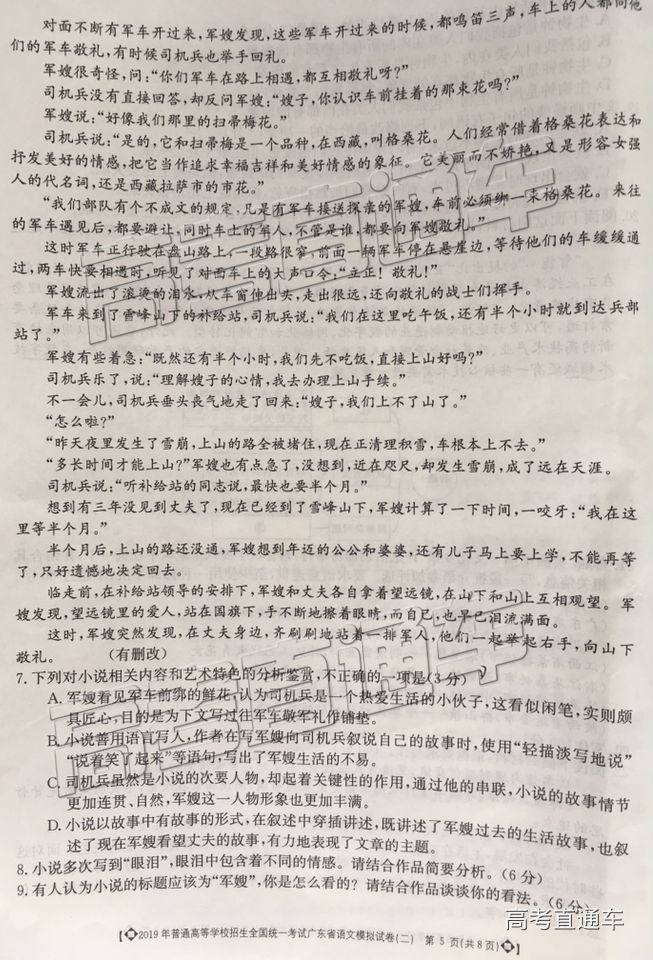 对面不断有军车开过来,军嫂发现,这些军车开过来的时候,都鸣笛三声,车上的人都向他
们的军车敬礼,有时候司机兵也举手回礼。
军嫂很奇怪,问:“你们军车在路上相遇,都互相敬礼呀?”
司机兵没有直接回答,却反问军嫂:“嫂子,你认识车前挂着的那束花吗?”
军嫂说:“好像我们那里的扫帚梅花。”
司机兵说:“是的,它和扫帚梅是一个品种,在西藏,叫格桑花。人们经常借着格桑花表达和
抒发美好的情感,把它当作追求幸福吉祥和美好情感的象征。它美丽而不娇艳,又是形容女强
人的代名词,还是西藏拉萨市的市花。”
“我们部队有个不成文的规定,凡是有军车接送探亲的军嫂,车前必须绑一束格桑花。来往
的军车遇见后,都要避让,同时车上的军人,不管是谁,都要向军嫂敬礼。”
这时军车正行驶在盘山路上,一段路很窄,前面一辆军车停在悬崖边,等待他们的车缓缓通
过,两车快要相遇时,听见了对面车上的大声口令:“立正!敬礼!”
军嫂流出了滚烫的泪水,从车窗伸出头,走出很远,还向敬礼的战士们挥手。
军车来到了雪峰山下的补给站,司机兵说:“我们在这里吃午饭,还有半个小时就到达兵部
站了。”
军嫂有些着急:“既然还有半个小时,我们先不吃饭,直接上山好吗?”
司机兵乐了,说:“理解嫂子的心情,我去办理上山手续。”
不一会儿,司机兵垂头丧气地走了回来:“嫂子,我们上不了山了。”
“怎么啦?”
“昨天夜里发生了雪崩,上山的路全被堵住,现在正清理积雪,车根本上不去。”
“多长时间才能上山?”军嫂也有点急了,没想到,近在咫尺,却发生雪崩,成了远在天涯。
司机兵说:“听补给站的同志说,最快也要半个月。”
想到有三年没见到丈夫了,现在已经到了雪峰山下,军嫂计算了一下时间,一咬牙:“我在这
里等半个月。”
半个月后,上山的路还没通,军嫂想到年迈的公公和婆婆,还有儿子马上要上学,不能再等
了,只好遗憾地决定回去。
临走前,在补给站领导的安排下,军嫂和丈夫各自拿着望远镜,在山下和山上互相观望。军
嫂发现,望远镜里的爱人,站在国旗下,手不断地擦着眼睛,而自己,也早已泪流满面。
这时,军嫂突然发现,在丈夫身边,齐刷刷地站着一排军人,他们一起举起右手,向山下
敬礼。 (有删改)
7.下列对小说相关内容和艺术特色的分析鉴赏,不正确的一项是(3分)( )
A.军嫂看见军车前绑的鲜花,认为司机兵是一个热爱生活的小伙子,这看似闲笔,实则颇
具匠心,目的是为下文写过往军车敬军礼作铺垫。
B.小说善用语言写人,作者在写军嫂向司机兵叙说自己的故事时,使用“轻描淡写地说”
“说着笑了起来”等语句,写出了军嫂生活的不易。
C.司机兵虽然是小说的次要人物,却起着关键性的作用,通过他的串联,小说的故事情节
更加连贯、自然,军嫂这一人物形象也更加丰满。
D.小说以故事中有故事的形式,在叙述中穿插讲述,既讲述了军嫂过去的生活故事,也叙
述了现在军嫂看望丈夫的故事,有力地表现了文章的主题。
8.小说多次写到“眼泪”,眼泪中包含着不同的情感。请结合作品简要分析。(6分)
9.有人认为小说的标题应该为“军嫂”,你是怎么看的?请结合作品谈谈你的看法。(6分)
【2019年普通高等学校招生全国统一考试广东省语文模拟试卷(二) 第5页(共8页)】
高考直通车
高考直通车
高考直通车